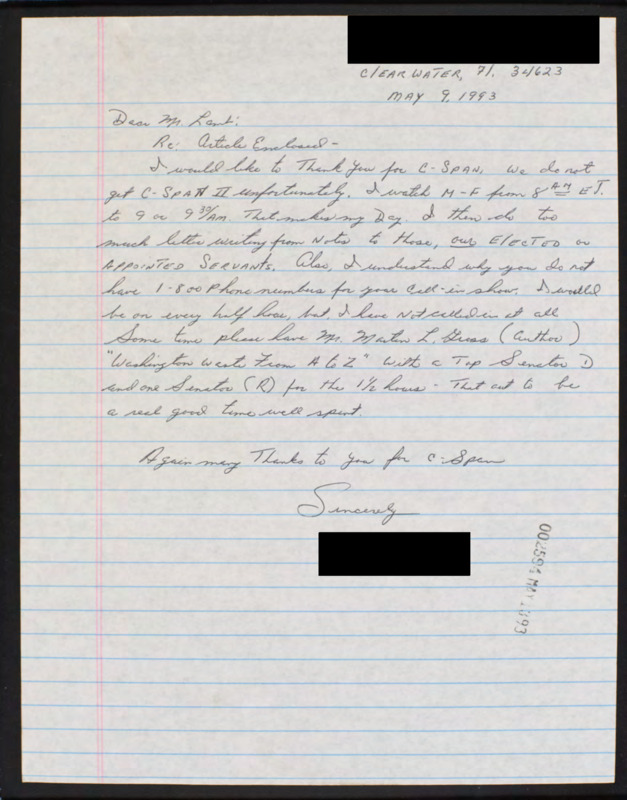 Clearwater, Fl. 34623
May 9, 1993
Dear Mr. Lamb:
Re: Article Enclosed -
I would like to Thank You for C-SPAN, We do not
get C-SPAN II unfortunately. I watch M-F from 8 AM ET.
to 9 or 9 30/AM. That makes my Day. I then do too
much letter writing from Notes to those, our ELECTED or
APPOINTED SERVANTS. Also, I understand why you do not
have 1-800 Phone numbers for your call-in show. I would
be on every half hour, but, I have Not called in at all
Some time please have Mr. Martin L. Gross (Author)
"Washington Waste From A to Z" with a Top Senator D
and one Senator (R) for the 1 1/2 hours - That out to be
a real good time well spent.
Again many Thanks to you for C-Span
Sincerely
002594 MAY 93